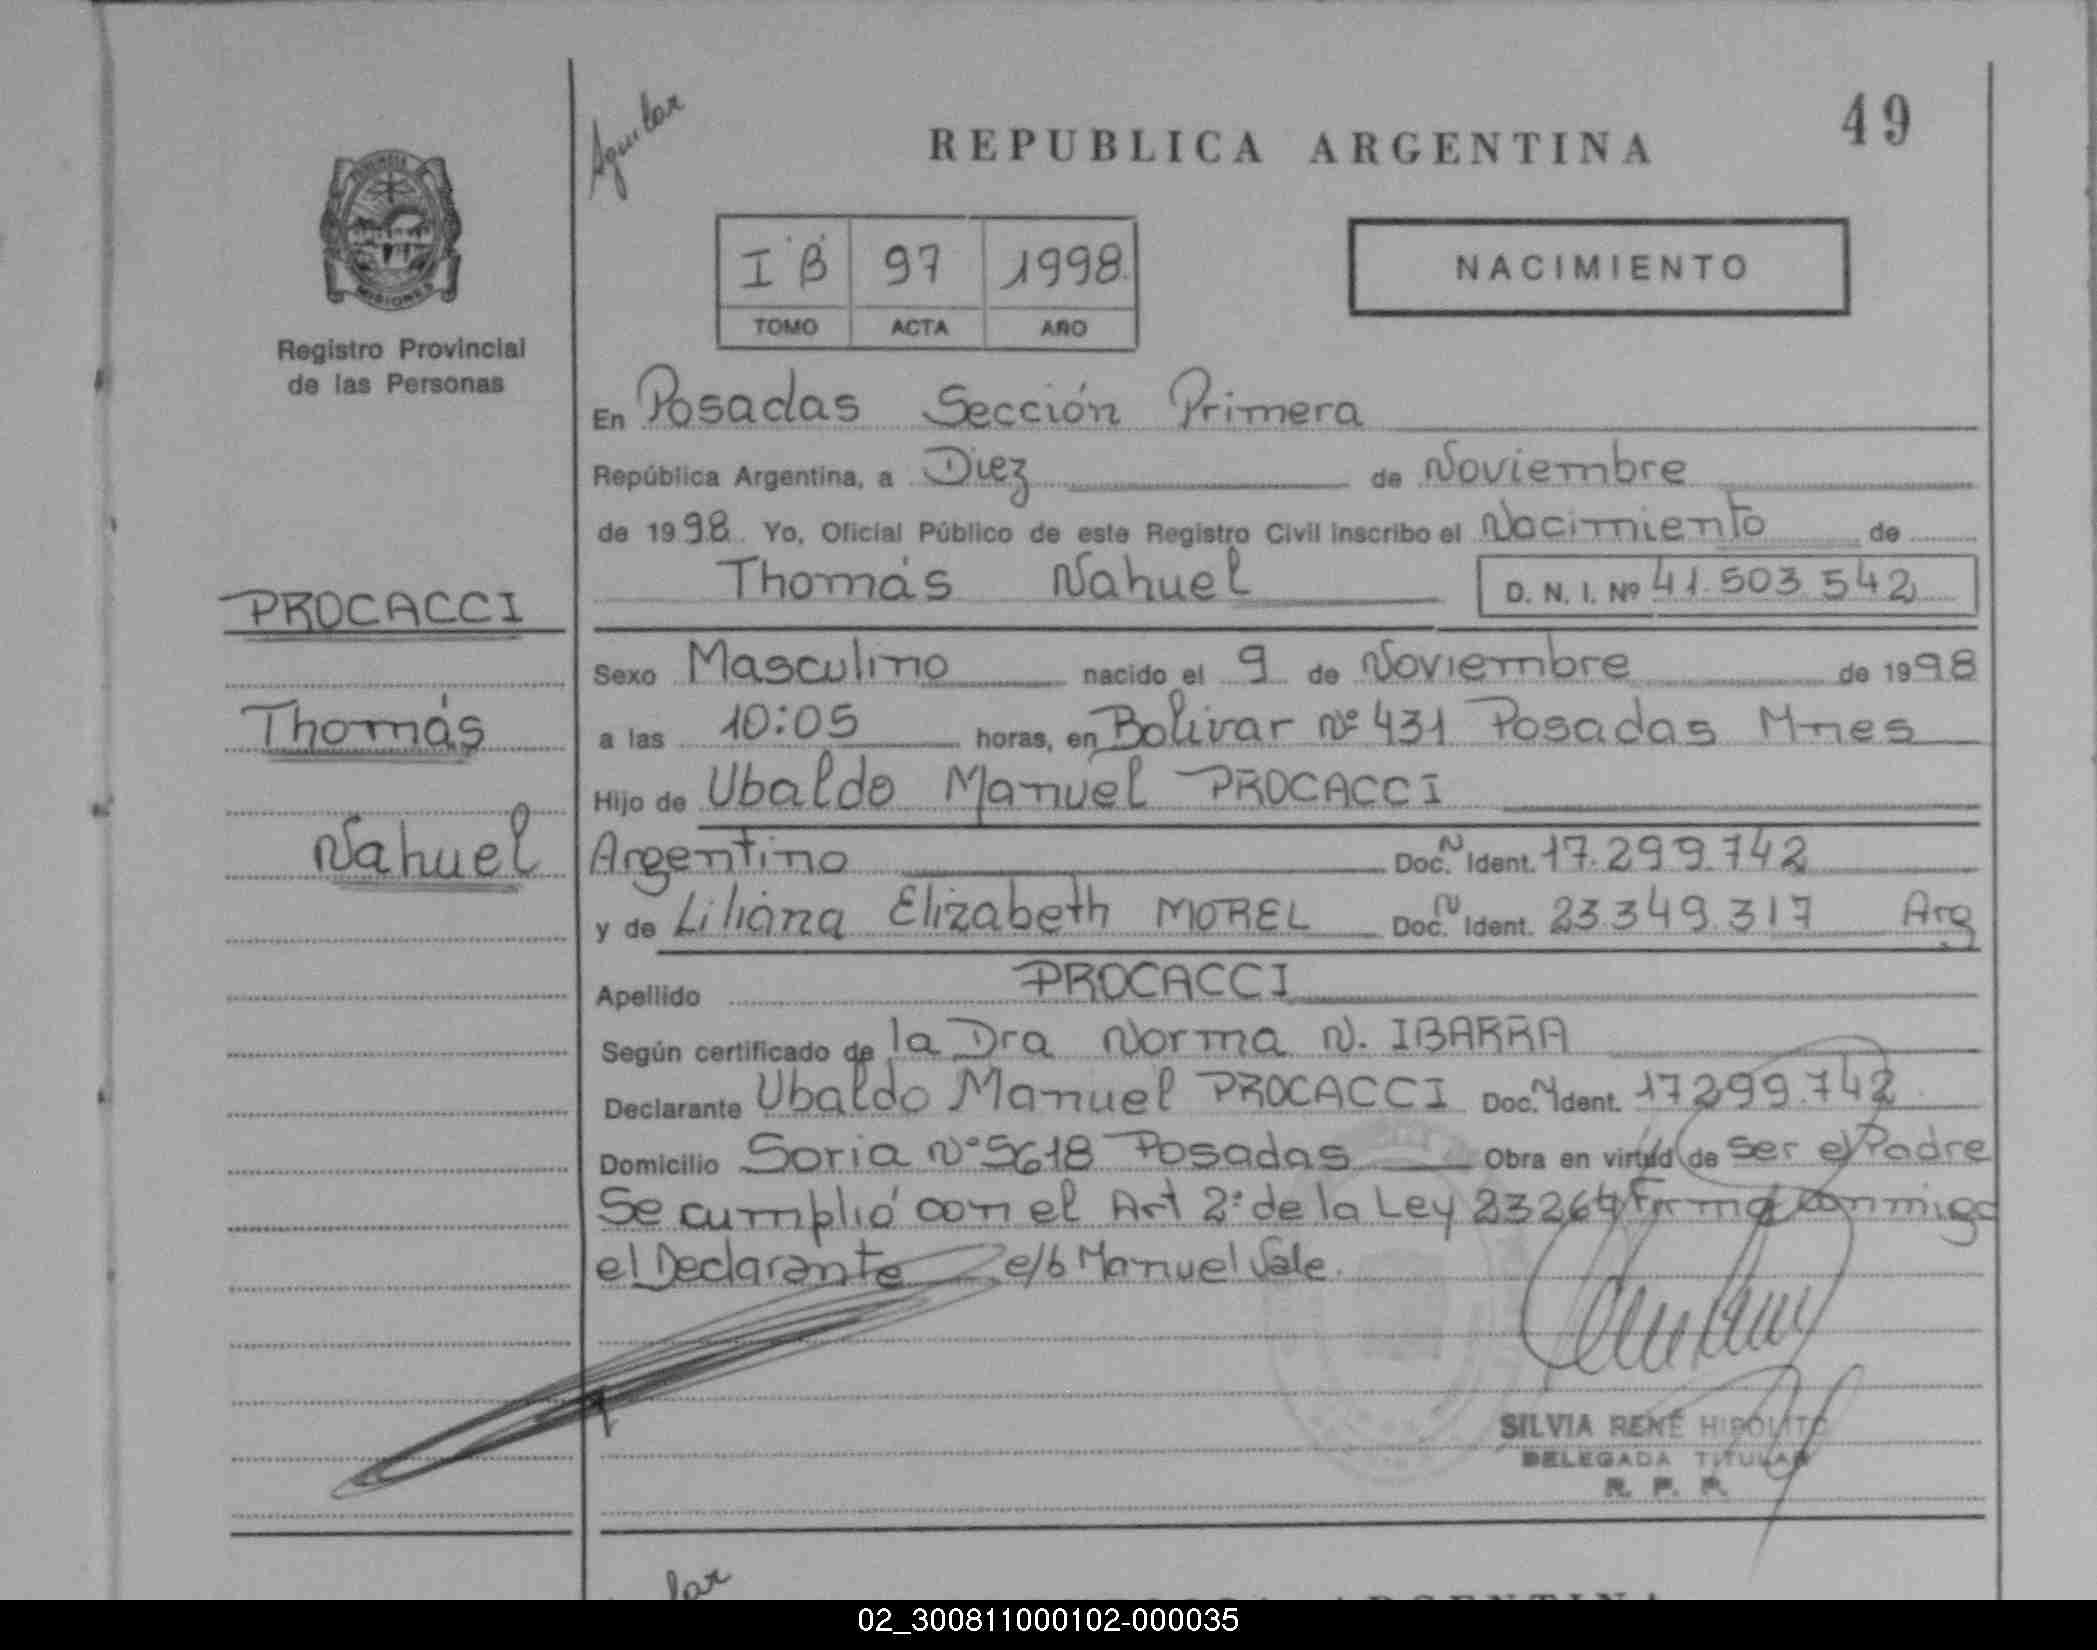 Aguilar
REPUBLICA ARGENTINA
49
MISIONES
Registro Provincial
de las Personas
I "B" 97 1998
TOMO ACTA AÑO
NACIMIENTO
En Posadas Sección Primera
República Argentina, a Diez de Noviembre
de 1998. Yo, Oficial Público de este Registro Civil inscribo el Nacimiento de
Thomás Nahuel D. N. I. Nº 41.503.542
PROCACCI
Thomás
Nahuel
Sexo Masculino nacido el 9 de Noviembre de 1998
a las 10:05 horas, en Bolivar nº 431 Posadas Mnes
Hijo de Ubaldo Manuel PROCACCI
Argentino Doc. N Ident. 17.299.742
y de Liliana Elizabeth MOREL Doc. N Ident. 23.349.317 Arg
Apellido PROCACCI
Según certificado de la Dra Norma N. IBARRA
Declarante Ubaldo Manuel PROCACCI Doc. N Ident. 17.299.742
Domicilio Soria Nº 5618 Posadas Obra en virtud de ser el Padre
Se cumplió con el Art 2º de la Ley 23264 Firma conmigo
el Declarante e/b Manuel Vale.
SILVIA RENÉ HIPOLITO
DELEGADA TITULAR
R. P. P.
lar
ARGENTINA
02_300811000102-000035